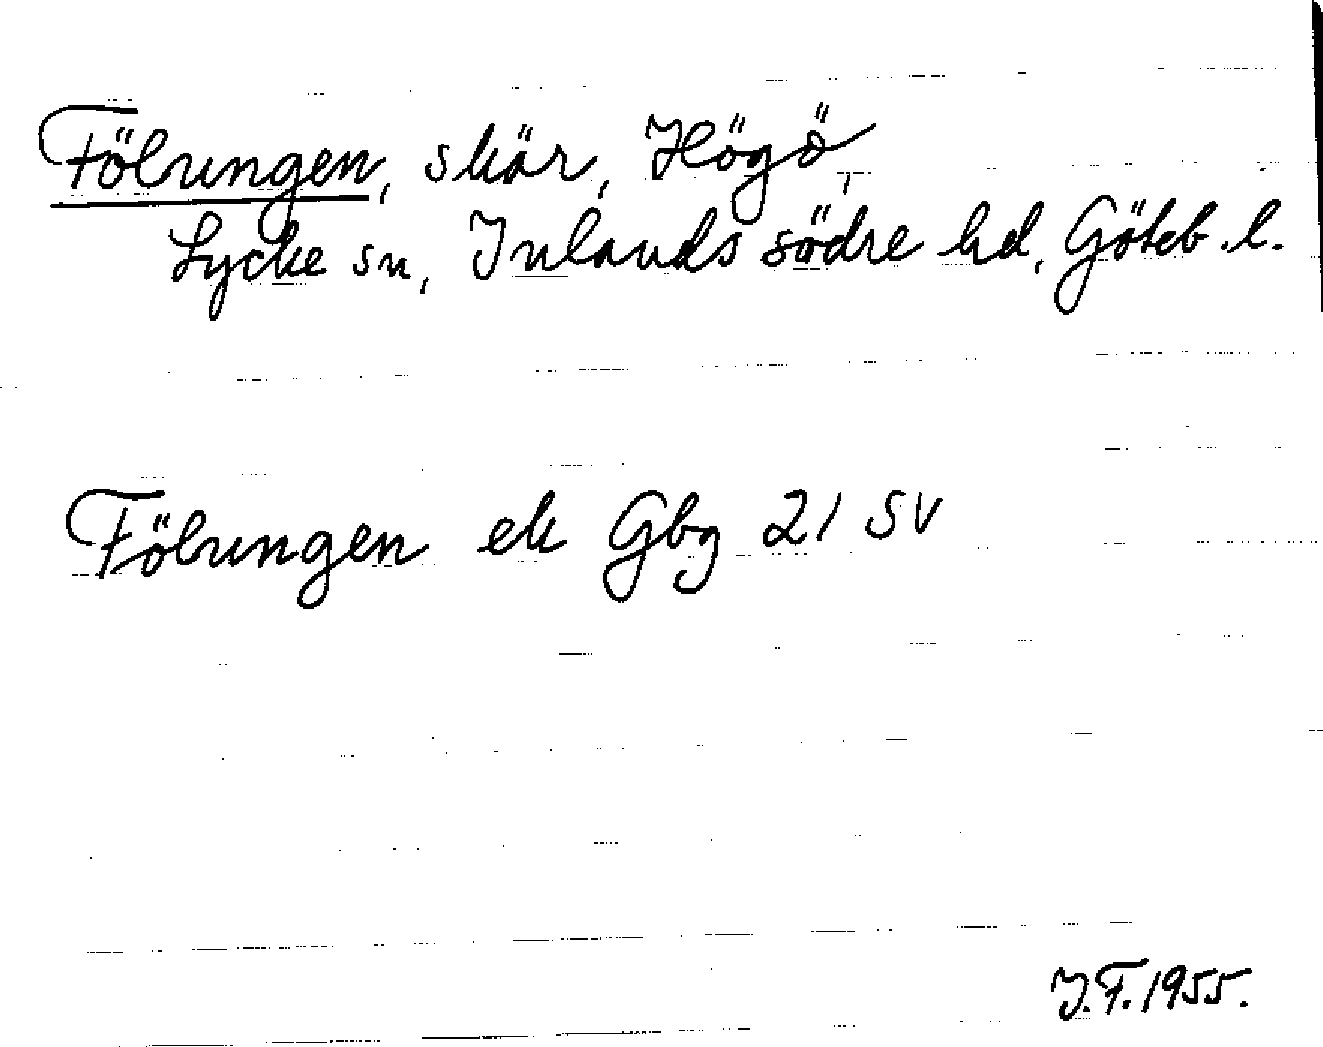 Fölungen, skär, Högö,
Lycke sn, Inlands södre hd, Göteb. l.
Fölungen ek Gbg 21 SV
J.F. 1955.